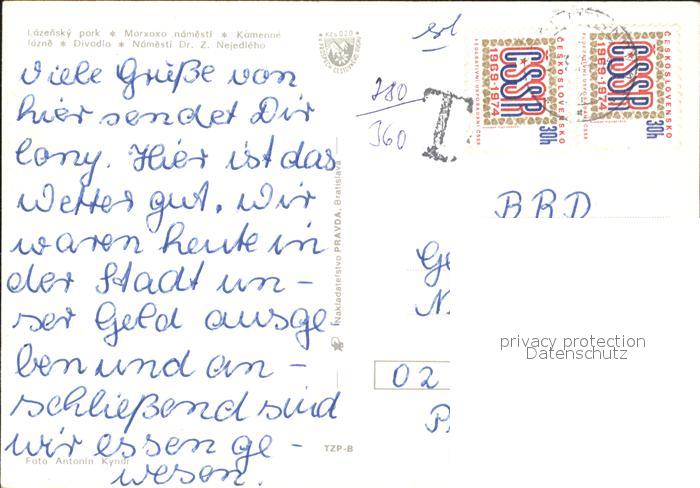 Lázeňský park * Morxoxo náměstí * Kamenné
lázně * Divadlo * Náměstí Dr. Z. Nejedlého
Kčs 0,20
Viele Grüße von
hier sendet Dir
Cony. Hier ist das
Wetter gut. Wir
waren heute in
der Stadt un-
ser Geld ausge
ben und an-
schließend sind
wir essen ge-
wesen.
Foto Antonín Kyndl
TZP-B
Nakladatelstvo PRAVDA, Bratislava
380
360
T
ČESKOSLOVENSKO
ČSSR
1969-1974
30h
ČESKOSLOVENSKO
ČSSR
1969-1974
30h
BRD
Ge
N
02
privacy protection
Datenschutz